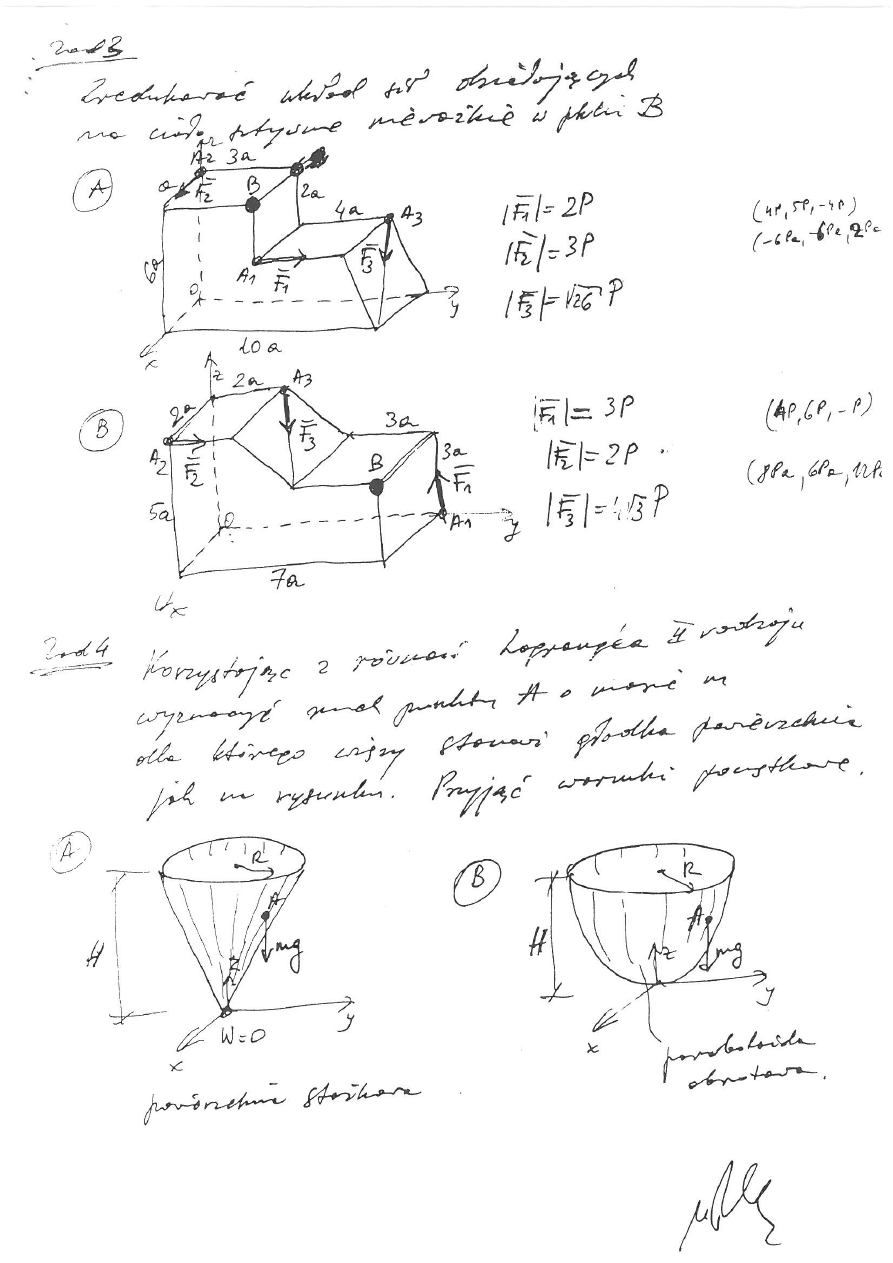 Zad 3
Zredukować układ sił działających
na ciało sztywne nieważkie w pkcie B
A
A2 3a
a
F2
B
2a
4a
A3
6a
A1
F1
F3
O
y
x
10a
|F1| = 2P
|F2| = 3P
|F3| = √26 P
(4P, 5P, -4P)
(-6Pa, -6Pa, 2Pa
B
z
2a
A3
2a
A2
F2
F3
3a
B
3a
F1
A1
5a
O
y
7a
x
|F1| = 3P
|F2| = 2P
|F3| = 4√3 P
(4P, 6P, -P)
(8Pa, 6Pa, 12Pa
Zad 4
Korzystając z równań Lagrange'a II rodzaju
wyznaczyć ruch punktu A o masie m
dla którego więzy stanowi gładka powierzchnia
jak na rysunku. Przyjąć warunki początkowe.
A
R
A
H
mg
z
y
W=0
x
powierzchnia stożkowa
B
R
A
H
z
mg
y
x
paraboloida
obrotowa.